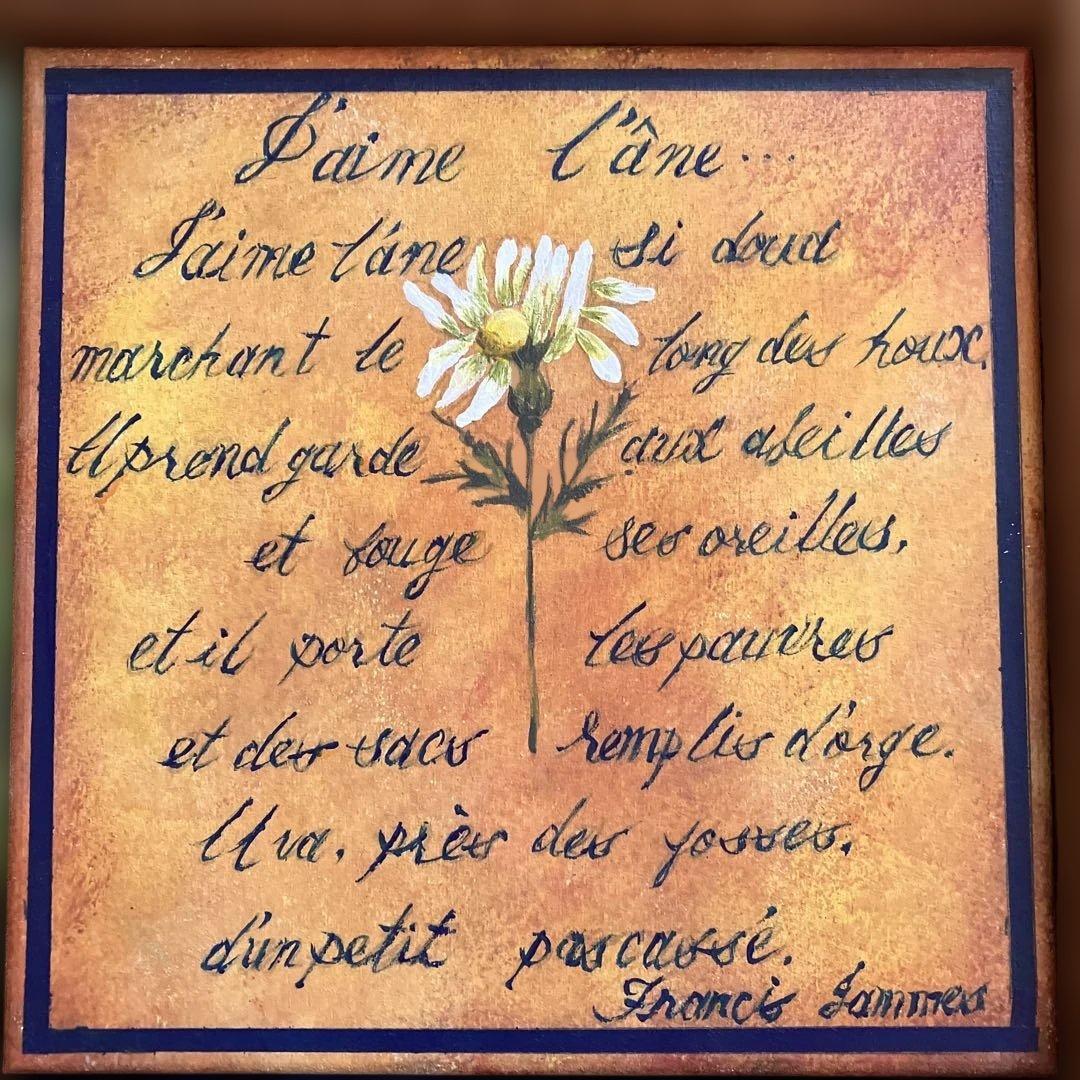 J'aime l'âne...
J'aime l'âne si doux
marchant le long des houx.
Il prend garde aux abeilles
et bouge ses oreilles,
et il porte les pauvres
et des sacs remplis d'orge.
Il va, près des fosses,
d'un petit pas cassé.
Francis Jammes